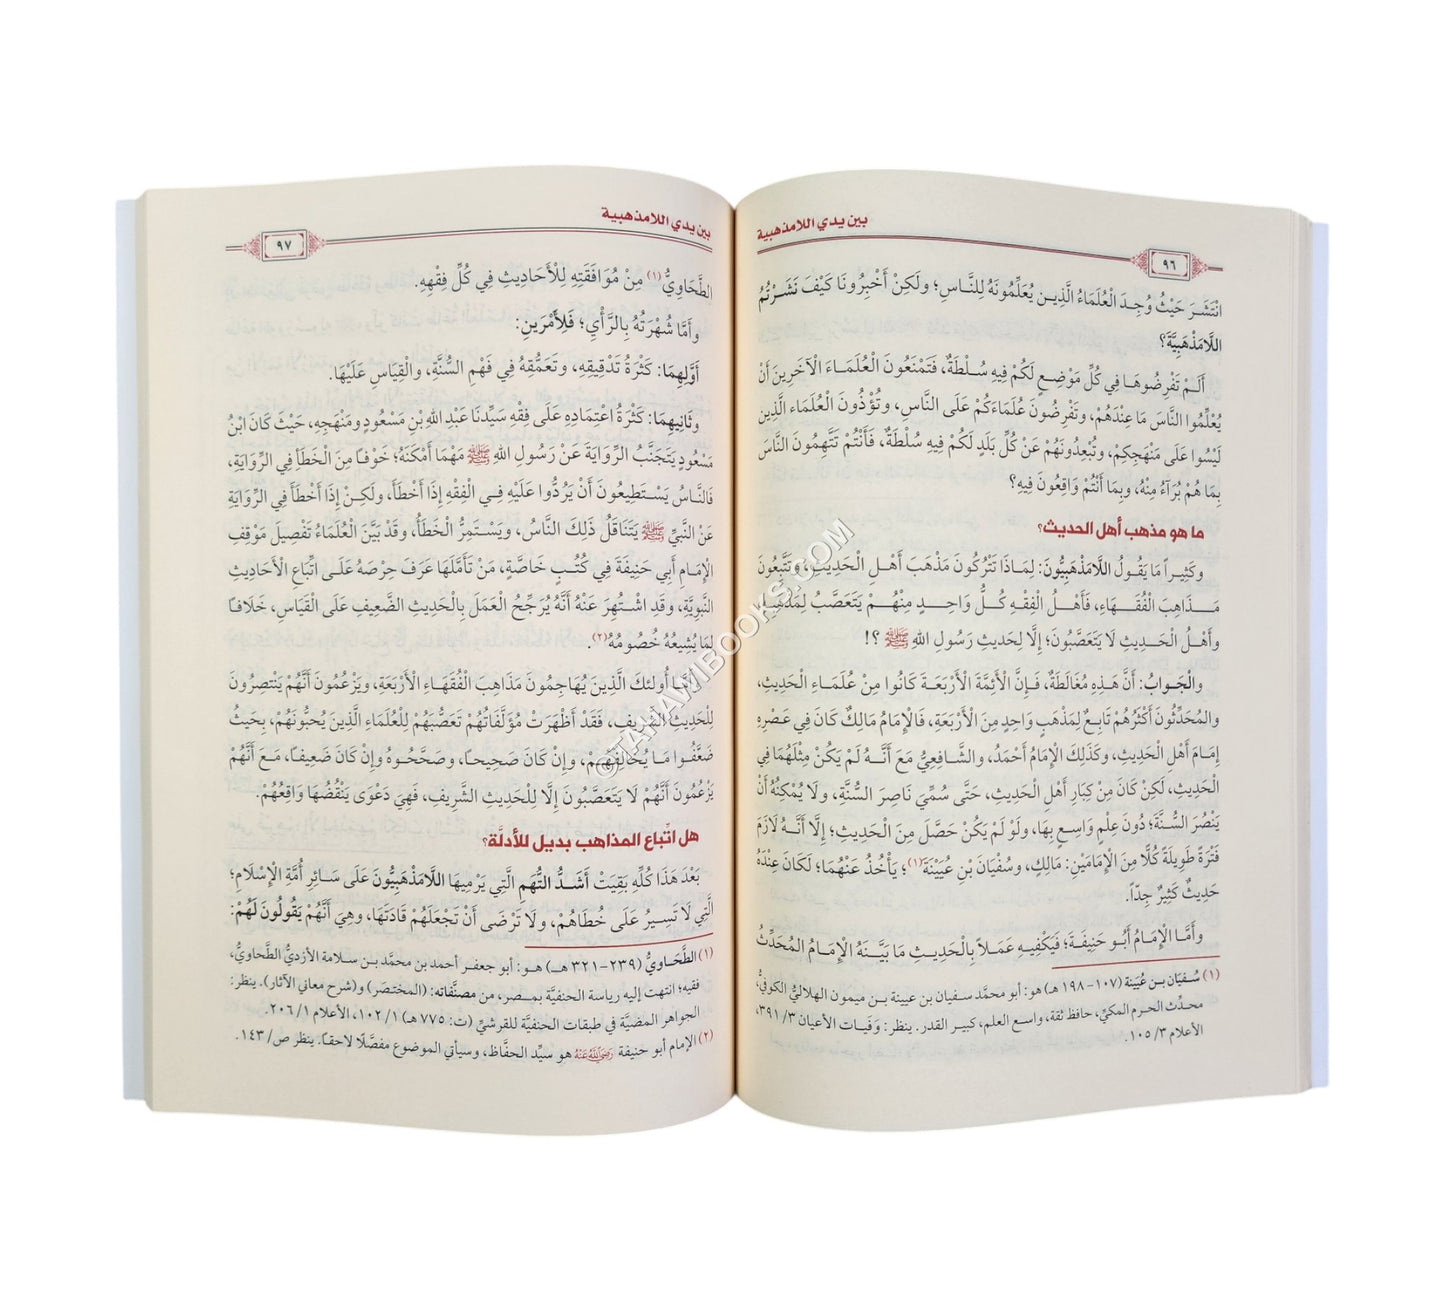 بين يدي اللامذهبية
٩٦
انْتَشَرَ حَيْثُ وُجِدَ الْعُلَمَاءُ الَّذِينَ يُعَلِّمُونَهُ لِلنَّاسِ؛ وَلَكِنْ أَخْبِرُونَا كَيْفَ نَشَرْتُمُ
اللَّامَذْهَبِيَّةَ؟
أَلَمْ تَفْرِضُوهَا فِي كُلِّ مَوْضِعٍ لَكُمْ فِيهِ سُلْطَةٌ، فَتَمْنَعُونَ الْعُلَمَاءَ الْآخَرِينَ أَنْ
يُعَلِّمُوا النَّاسَ مَا عِنْدَهُمْ، وتَفْرِضُونَ عُلَمَاءَكُمْ عَلَى النَّاسِ، وتُؤْذُونَ الْعُلَمَاءَ الَّذِينَ
لَيْسُوا عَلَى مَنْهَجِكِمْ، وتُبْعِدُونَهُمْ عَنْ كُلِّ بَلَدٍ لَكُمْ فِيهِ سُلْطَةٌ، فَأَنْتُمْ تَتَّهِمُونَ النَّاسَ
بِمَا هُمْ بُرَآءُ مِنْهُ، وبِمَا أَنْتُمْ وَاقِعُونَ فِيهِ؟
ما هو مذهب أهل الحديث؟
وكَثِيراً مَا يَقُولُ اللَّامَذْهَبِيُّونَ: لِمَاذَا تَتْرُكُونَ مَذْهَبَ أَهْلِ الْحَدِيثِ، وتَتَّبِعُونَ
مَذَاهِبَ الْفُقَهَاءِ، فَأَهْلُ الْفِقْهِ كُلُّ وَاحِدٍ مِنْهُمْ يَتَعَصَّبُ لِمَذْهَبِهِ
وأَهْلُ الْحَدِيثِ لَا يَتَعَصَّبُونَ؛ إِلَّا لِحَدِيثِ رَسُولِ اللهِ ﷺ ؟!
والْجَوابُ: أَنَّ هَذِهِ مُغَالَطَةٌ، فَإِنَّ الْأَئِمَّةَ الْأَرْبَعَةَ كَانُوا مِنْ عُلَمَاءِ الْحَدِيثِ،
والمُحَدِّثُونَ أَكْثَرُهُمْ تَابِعٌ لِمَذْهَبٍ وَاحِدٍ مِنَ الْأَرْبَعَةِ، فَالْإِمَامُ مَالِكٌ كَانَ فِي عَصْرِهِ
إِمَامَ أَهْلِ الْحَدِيثِ، وكَذَلِكَ الْإِمَامُ أَحْمَدُ، والشَّافِعِيُّ مَعَ أَنَّهُ لَمْ يَكُنْ مِثْلَهُمَا فِي
الْحَدِيثِ، لَكِنْ كَانَ مِنْ كِبَارِ أَهْلِ الْحَدِيثِ، حَتَّى سُمِّيَ نَاصِرَ السُّنَّةِ، ولَا يُمْكِنُهُ أَنْ
يَنْصُرَ السُّنَّةَ؛ دُونَ عِلْمٍ وَاسِعٍ بِهَا، ولَوْ لَمْ يَكُنْ حَصَّلَ مِنَ الْحَدِيثِ؛ إِلَّا أَنَّهُ لَازَمَ
فَتْرَةً طَوِيلَةً كُلّاً مِنَ الْإِمَامَيْنِ: مَالِكٍ، وسُفْيَانَ بْنِ عُيَيْنَةَ(١)؛ يَأْخُذُ عَنْهُمَا؛ لَكَانَ عِنْدَهُ
حَدِيثٌ كَثِيرٌ جِدّاً.
وأَمَّا الْإِمَامُ أَبُو حَنِيفَةَ؛ فَيَكْفِيهِ عَمَلاً بِالْحَدِيثِ مَا بَيَّنَهُ الْإِمَامُ المُحَدِّثُ
(١) سُفيَان بن عُيَينة (١٠٧-١٩٨ هـ) هو: أبو محمَّد سفيان بن عيينة بن ميمون الهلاليُّ الكوفيُّ،
محدِّث الحرم المكيِّ، حافظ ثقة، واسع العلم، كبير القدر. ينظر: وَفَيات الأعيان ٣/ ٣٩١،
الأعلام ٣/ ١٠٥.
بين يدي اللامذهبية
٩٧
الطَّحَاوِيُّ(١) مِنْ مُوَافَقَتِهِ لِلْأَحَادِيثِ فِي كُلِّ فِقْهِهِ.
وأَمَّا شُهْرَتُهُ بِالرَّأْيِ؛ فَلِأَمْرَيْنِ:
أَوَّلِهِمَا: كَثْرَةُ تَدْقِيقِهِ، وتَعَمُّقِهِ فِي فَهْمِ السُّنَّةِ، والْقِيَاسِ عَلَيْهَا.
وثَانِيهِمَا: كَثْرَةُ اعْتِمَادِهِ عَلَى فِقْهِ سَيِّدِنَا عَبْدِ اللهِ بْنِ مَسْعُودٍ ومَنْهَجِهِ، حَيْثُ كَانَ ابْنُ
مَسْعُودٍ يَتَجَنَّبُ الرِّوَايَةَ عَنْ رَسُولِ اللهِ ﷺ مَهْمَا أَمْكَنَهُ؛ خَوْفاً مِنَ الْخَطَأِ فِي الرِّوَايَةِ،
فَالنَّاسُ يَسْتَطِيعُونَ أَنْ يَرُدُّوا عَلَيْهِ فِي الْفِقْهِ إِذَا أَخْطَأَ، ولَكِنْ إِذَا أَخْطَأَ فِي الرِّوَايَةِ
عَنْ النَّبِيِّ ﷺ يَتَنَاقَلُ ذَلِكَ النَّاسُ، ويَسْتَمِرُّ الْخَطَأُ، وقَدْ بَيَّنَ الْعُلَمَاءُ تَفْصِيلَ مَوْقِفِ
الْإِمَامِ أَبِي حَنِيفَةَ فِي كُتُبٍ خَاصَّةٍ، مَنْ تَأَمَّلَهَا عَرَفَ حِرْصَهُ عَلَى اتِّبَاعِ الْأَحَادِيثِ
النَّبوِيَّةِ، وقَدِ اشْتُهِرَ عَنْهُ أَنَّهُ يُرَجِّحُ الْعَمَلَ بِالْحَدِيثِ الضَّعِيفِ عَلَى الْقِيَاسِ، خَلَافاً
لِمَا يُشِيعُهُ خُصُومُهُ(٢).
أُولَئكَ الَّذِينَ يُهَاجِمُونَ مَذَاهِبَ الْفُقَهَاءِ الْأَرْبَعَةِ، ويَزْعُمُونَ أَنَّهُمْ يَنْتَصِرُونَ
لِلْحَدِيثِ الشَّرِيفِ، فَقَدْ أَظْهَرَتْ مُؤَلَّفَاتُهُمْ تَعَصُّبَهُمْ لِلْعُلَمَاءِ الَّذِينَ يُحِبُّونَهُمْ، بِحَيثُ
ضَعَّفُوا مَا يُخَالِفُهُمْ، وإِنْ كَانَ صَحِيحاً، وصَحَّحُوهُ وإِنْ كَانَ ضَعِيفاً، مَعَ أَنَّهُمْ
يَزْعُمُونَ أَنَّهُمْ لَا يَتَعَصَّبُونَ إِلَّا لِلْحَدِيثِ الشَّرِيفِ، فَهِيَ دَعْوَى يَنْقُضُهَا وَاقِعُهُمْ.
هل اتّباع المذاهب بديل للأدلَّة؟
بَعْدَ هَذَا كُلِّهِ بَقِيَتْ أَشَدُّ التُّهَمِ الَّتِي يَرْمِيهَا اللَّامَذْهَبِيُّونَ عَلَى سَائِرِ أُمَّةِ الْإِسْلَامِ؛
الَّتِي لَا تَسِيرُ عَلَى خُطَاهُمْ، ولَا تَرْضَى أَنْ تَجْعَلَهُمْ قَادَتَهَا، وهِيَ أَنَّهُمْ يَقُولُونَ لَهُمْ:
(١) الطَّحَاويُّ (٢٣٩-٣٢١ هـ) هو: أبو جعفر أحمد بن محمَّد بن سلامة الأزديُّ الطَّحاويُّ،
فقيه؛ انتهت إليه رياسة الحنفيَّة بمصر، من مصنَّفاته: (المختصَر) و(شرح معاني الآثار). ينظر:
الجواهر المضيَّة في طبقات الحنفيَّة للقرشيِّ (ت: ٧٧٥ هـ) ١/ ١٠٢، الأعلام ١/ ٢٠٦.
(٢) الإمام أبو حنيفة رضي الله عنه هو سيِّد الحفَّاظ، وسيأتي الموضوع مفصَّلًا لاحقاً. ينظر ص/ ١٤٣.
© TAHAWIBOOKS.COM